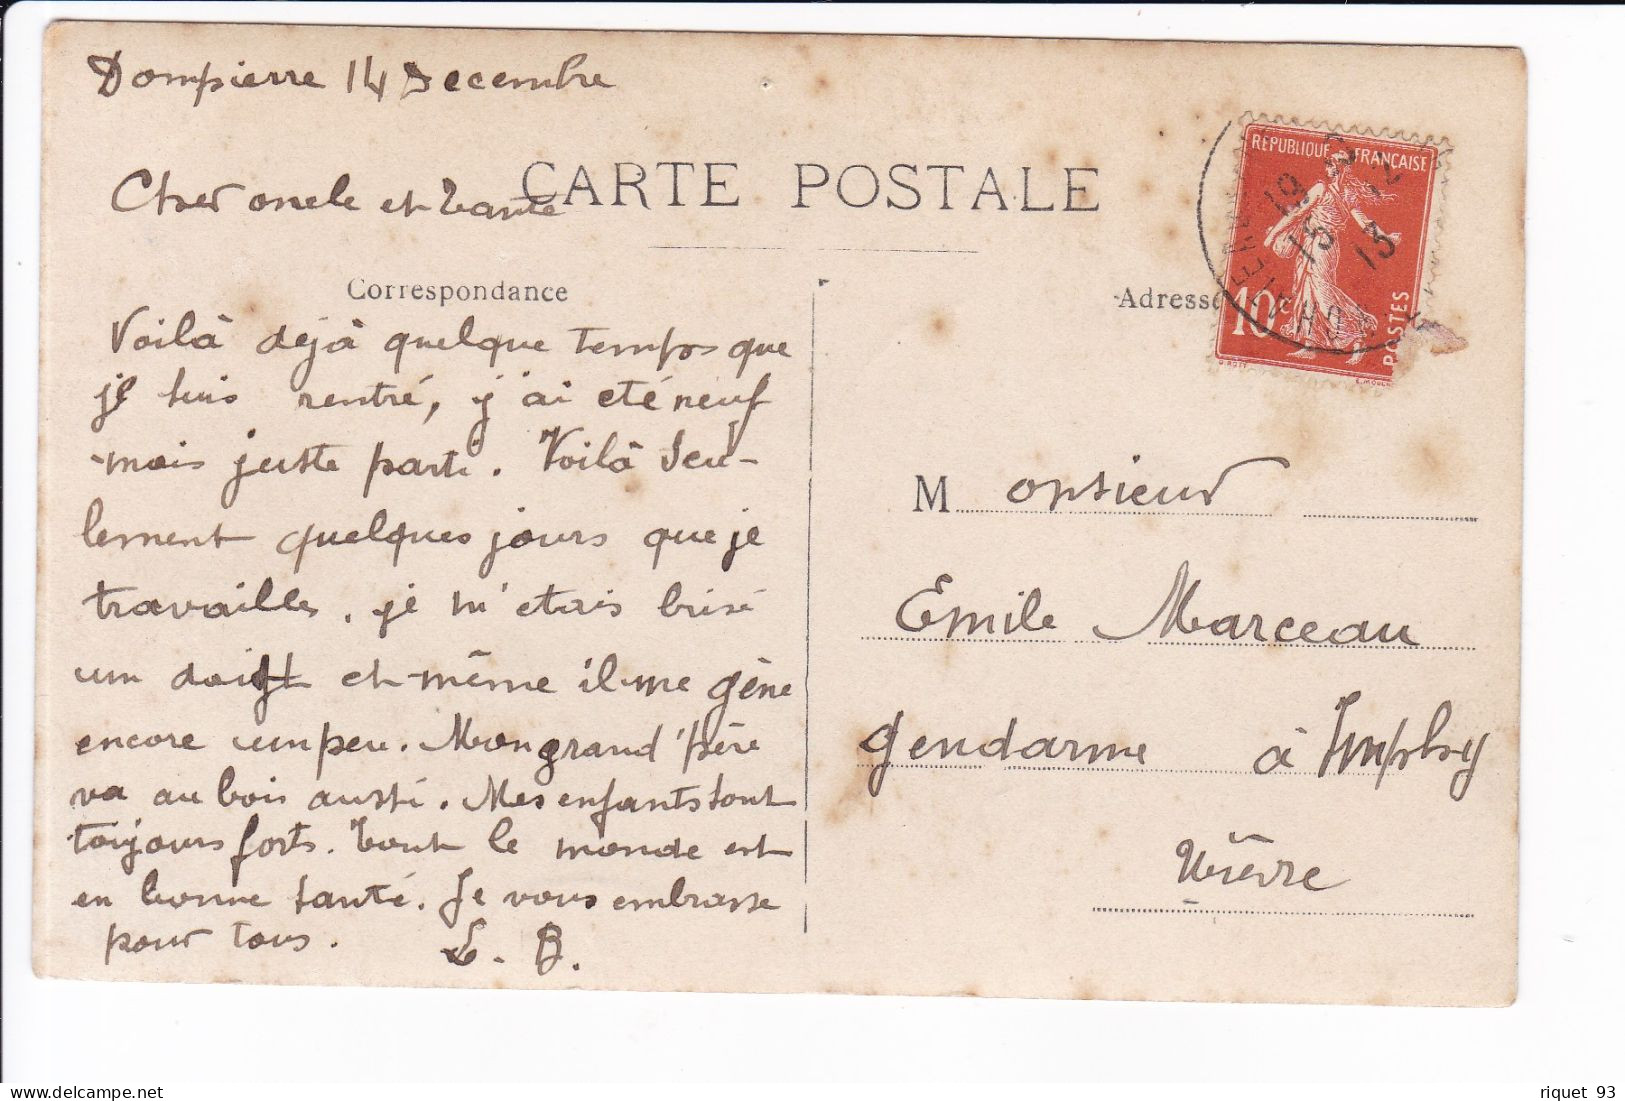 Dompierre 14 Decembre
CARTE POSTALE
Cher oncle et tante
Correspondance
Voilà déjà quelque temps que
je suis rentré, j'ai eté neuf
mois juste parti. Voilà seu-
lement quelques jours que je
travaille, je m'etais brisé
un doigt et même il me gène
encore un peu. Mon grand'père
va au bois aussi. Mes enfants sont
toujours forts. Tout le monde est
en bonne santé. Je vous embrasse
pour tous. L. B.
REPUBLIQUE FRANÇAISE
10c
POSTES
19
15 12
13
Adresse
Monsieur
Emile Marceau
gendarme à Imphy
Nièvre
riquet 93